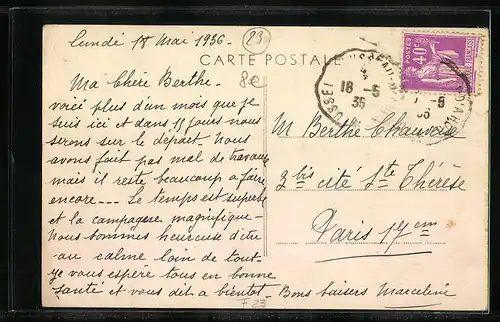 Lundi 18 Mai 1936 -
23
8€
CARTE POSTALE
POSTES
40c
USSEL
18 - 5
36
Ma Chère Berthe -
voici plus d'un mois que je
suis ici et dans 11 jours nous
serons sur le départ - Nous
avons fait pas mal de travaux
mais il reste beaucoup a faire
encore ---- Le temps est superbe
et la campagne magnifique -
Nous sommes heureuse d'etre
au calme loin de tout -
Je vous espère tous en bonne
santé et vous dit a bientot - Bons baisers Marceline
M. Berthe
3 bis cité Ste Thérèse
Paris 17 em
F 23